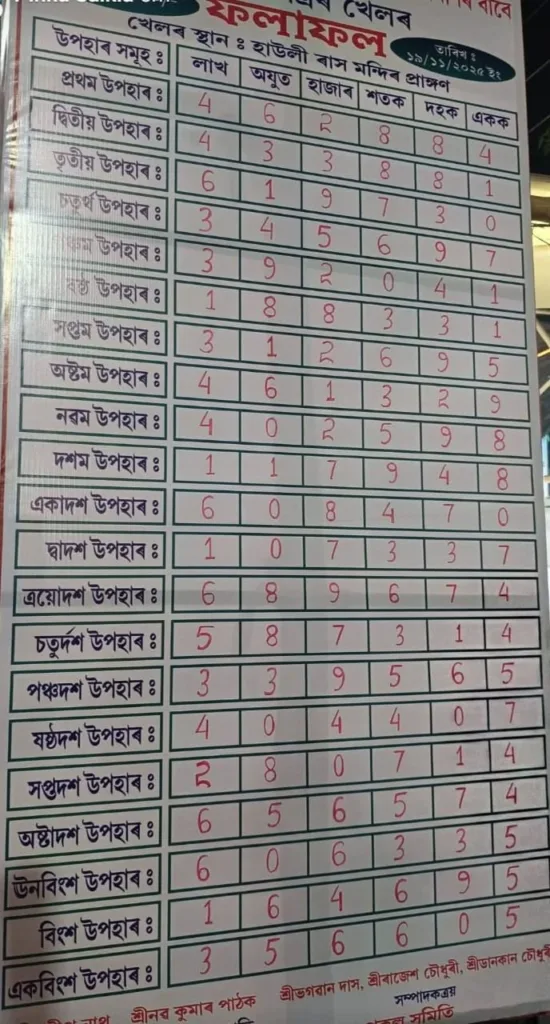 খেলৰ
ফলাফল
খেলৰ স্থান : হাউলী ৰাস মন্দিৰ প্ৰাঙ্গণ
তাৰিখ :
১৯/১১/২০২৫ ইং
উপহাৰ সমূহ : লাখ অযুত হাজাৰ শতক দহক একক
প্ৰথম উপহাৰ : 4 6 2 8 8 4
দ্বিতীয় উপহাৰ : 4 3 3 8 8 1
তৃতীয় উপহাৰ : 6 1 9 7 3 0
চতুৰ্থ উপহাৰ : 3 4 5 6 9 7
পঞ্চম উপহাৰ : 3 9 2 0 4 1
ষষ্ঠ উপহাৰ : 1 8 8 3 3 1
সপ্তম উপহাৰ : 3 1 2 6 9 5
অষ্টম উপহাৰ : 4 6 1 3 2 9
নৱম উপহাৰ : 4 0 2 5 9 8
দশম উপহাৰ : 1 1 7 9 4 8
একাদশ উপহাৰ : 6 0 8 4 7 0
দ্বাদশ উপহাৰ : 1 0 7 3 3 7
ত্ৰয়োদশ উপহাৰ : 6 8 9 6 7 4
চতুৰ্দশ উপহাৰ : 5 8 7 3 1 4
পঞ্চদশ উপহাৰ : 3 3 9 5 6 5
ষষ্ঠদশ উপহাৰ : 4 0 4 4 0 7
সপ্তদশ উপহাৰ : 2 8 0 7 1 4
অষ্টাদশ উপহাৰ : 6 5 6 5 7 4
ঊনবিংশ উপহাৰ : 6 0 6 3 3 5
বিংশ উপহাৰ : 1 6 4 6 9 5
একবিংশ উপহাৰ : 3 5 6 6 0 5
শ্ৰীনৱ কুমাৰ পাঠক শ্ৰীভগবান দাস, শ্ৰীৰাজেশ চৌধুৰী, শ্ৰীডানকান চৌধুৰী
সম্পাদকত্ৰয়
সমিতি